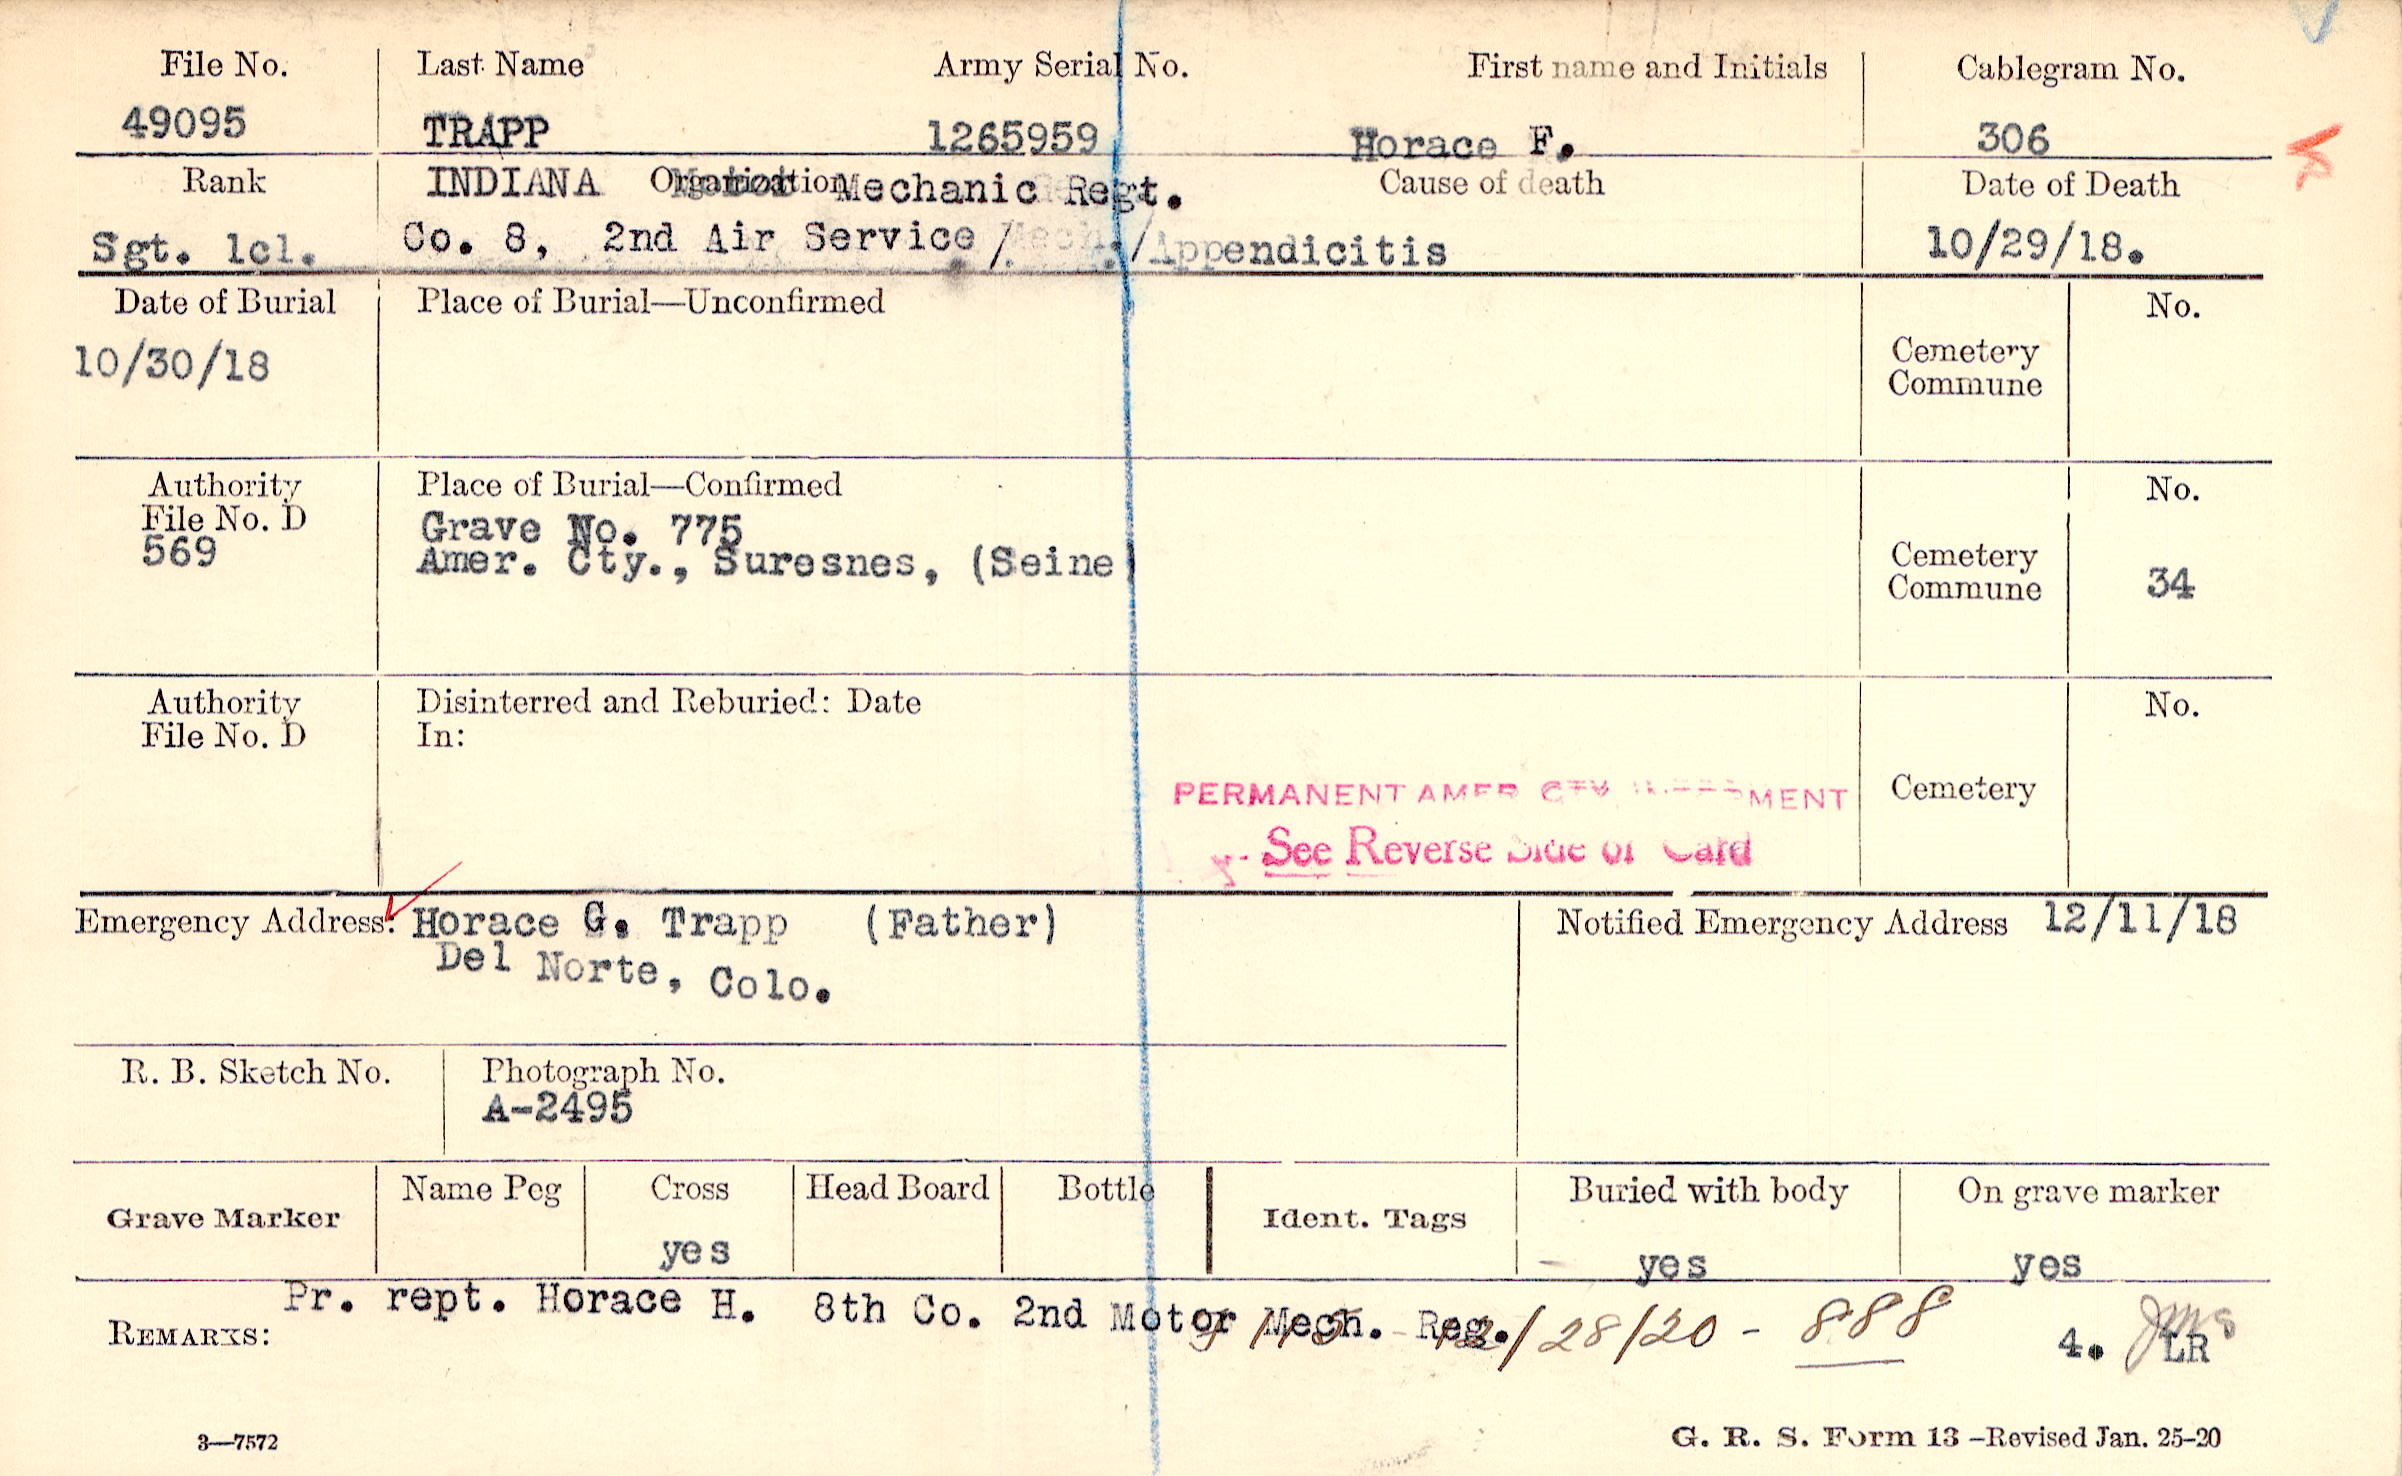 File No. Last Name Army Serial No. First name and Initials Cablegram No.
49095 TRAPP 1265959 Horace F. 306
Rank INDIANA Organization Mechanic Regt. Cause of death Date of Death
Sgt. 1cl. Co. 8, 2nd Air Service / Mech./ Appendicitis 10/29/18.
Date of Burial Place of Burial—Unconfirmed No.
10/30/18 Cemetery
Commune
Authority Place of Burial—Confirmed No.
File No. D Grave No. 775
569 Amer. Cty., Suresnes, (Seine) Cemetery
Commune 34
Authority Disinterred and Reburied: Date No.
File No. D In:
PERMANENT AMER CTY Cemetery
See Reverse Side of Card
Emergency Address: Horace G. Trapp (Father) Notified Emergency Address 12/11/18
Del Norte, Colo.
R. B. Sketch No. Photograph No.
A-2495
Grave Marker Name Peg Cross Head Board Bottle Ident. Tags Buried with body On grave marker
yes yes yes
REMARKS: Pr. rept. Horace H. 8th Co. 2nd Motor Mech. Reg. /28/20 - 888 4. LR
3—7572 G. R. S. Form 13 -Revised Jan. 25-20